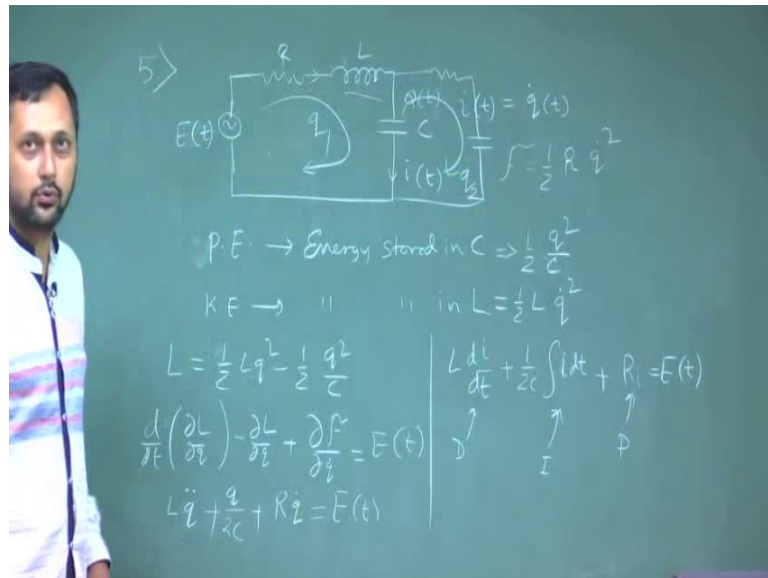 5>
R L
E(t) q1 Q(t) C i(t) = q̇(t)
i(t) q2 F = 1/2 R q̇²
P.E. → Energy stored in C ⇒ 1/2 q²/C
KE → " " in L = 1/2 L q̇²
L = 1/2 Lq̇² - 1/2 q²/C
d/dt (∂L/∂q̇) - ∂L/∂q + ∂F/∂q̇ = E(t)
Lq̈ + q/2C + Rq̇ = E(t)
L di/dt + 1/2C ∫i dt + Ri = E(t)
D I P